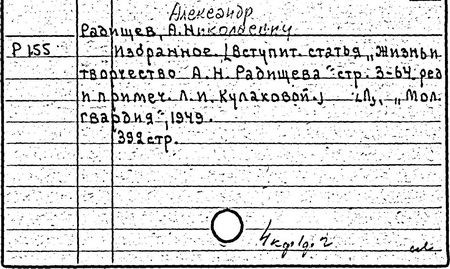 Александр
Радищев, А. Николаевич
Р 155 Избранное. [Вступит. статья „Жизнь и
творчество А. Н. Радищева" стр. 3-64, ред.
и примеч. Л. И. Кулаковой.] М., „Мол.
гвардия", 1949.
392 стр.